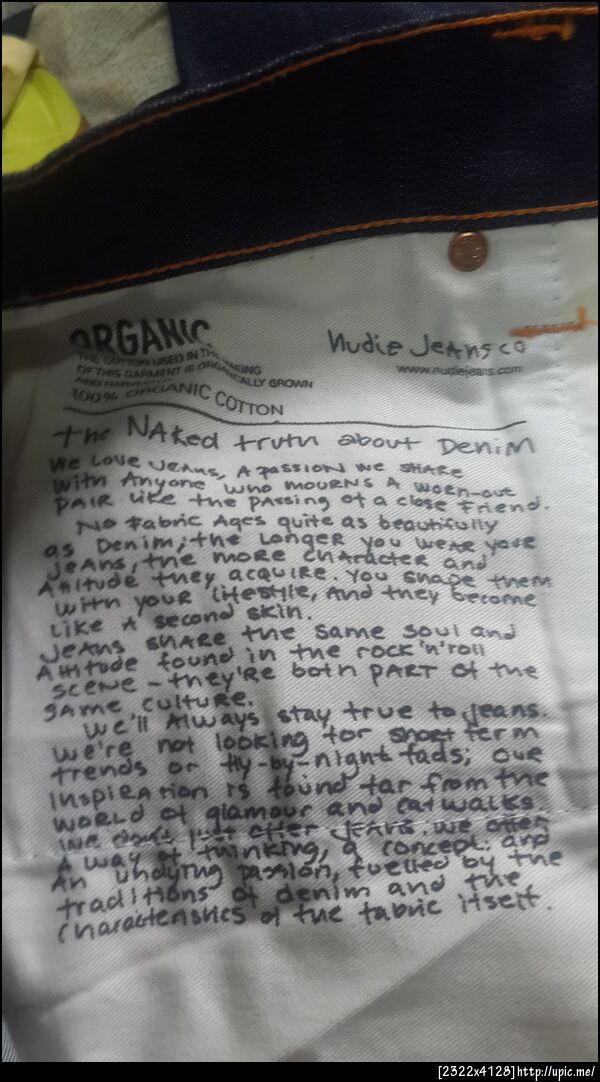 ORGANIC
THE COTTON USED IN THE MAKING
OF THIS GARMENT IS ORGANICALLY GROWN
AND HARVESTED
100% ORGANIC COTTON
Nudie Jeans co
www.nudiejeans.com
The NAked truth about DeniM
We Love JeAns, A passion we sHARe
with Anyone who mourns A worn-out
PAIR like the passing of a close friend.
No fabric Ages quite as beautifully
as Denim; the Longer you weAR your
jeans, the more character and
Attitude they acquire. You shape them
with your lifestyle, And they become
like A second skin.
Jeans share the same soul and
Attitude found in the rock'n'roll
scene - they're both pART of the
same culture.
We'll Always stay true to jeans.
We're not looking for short term
trends or fly-by-night fads; our
inspiration is found far from the
world of glamour and catwalks.
We don't just offer jeans, we offer
A way of thinking, a concept and
An undying passion, fuelled by the
traditions of denim and the
characteristics of the fabric itself.
[2322x4128]http://upic.me/